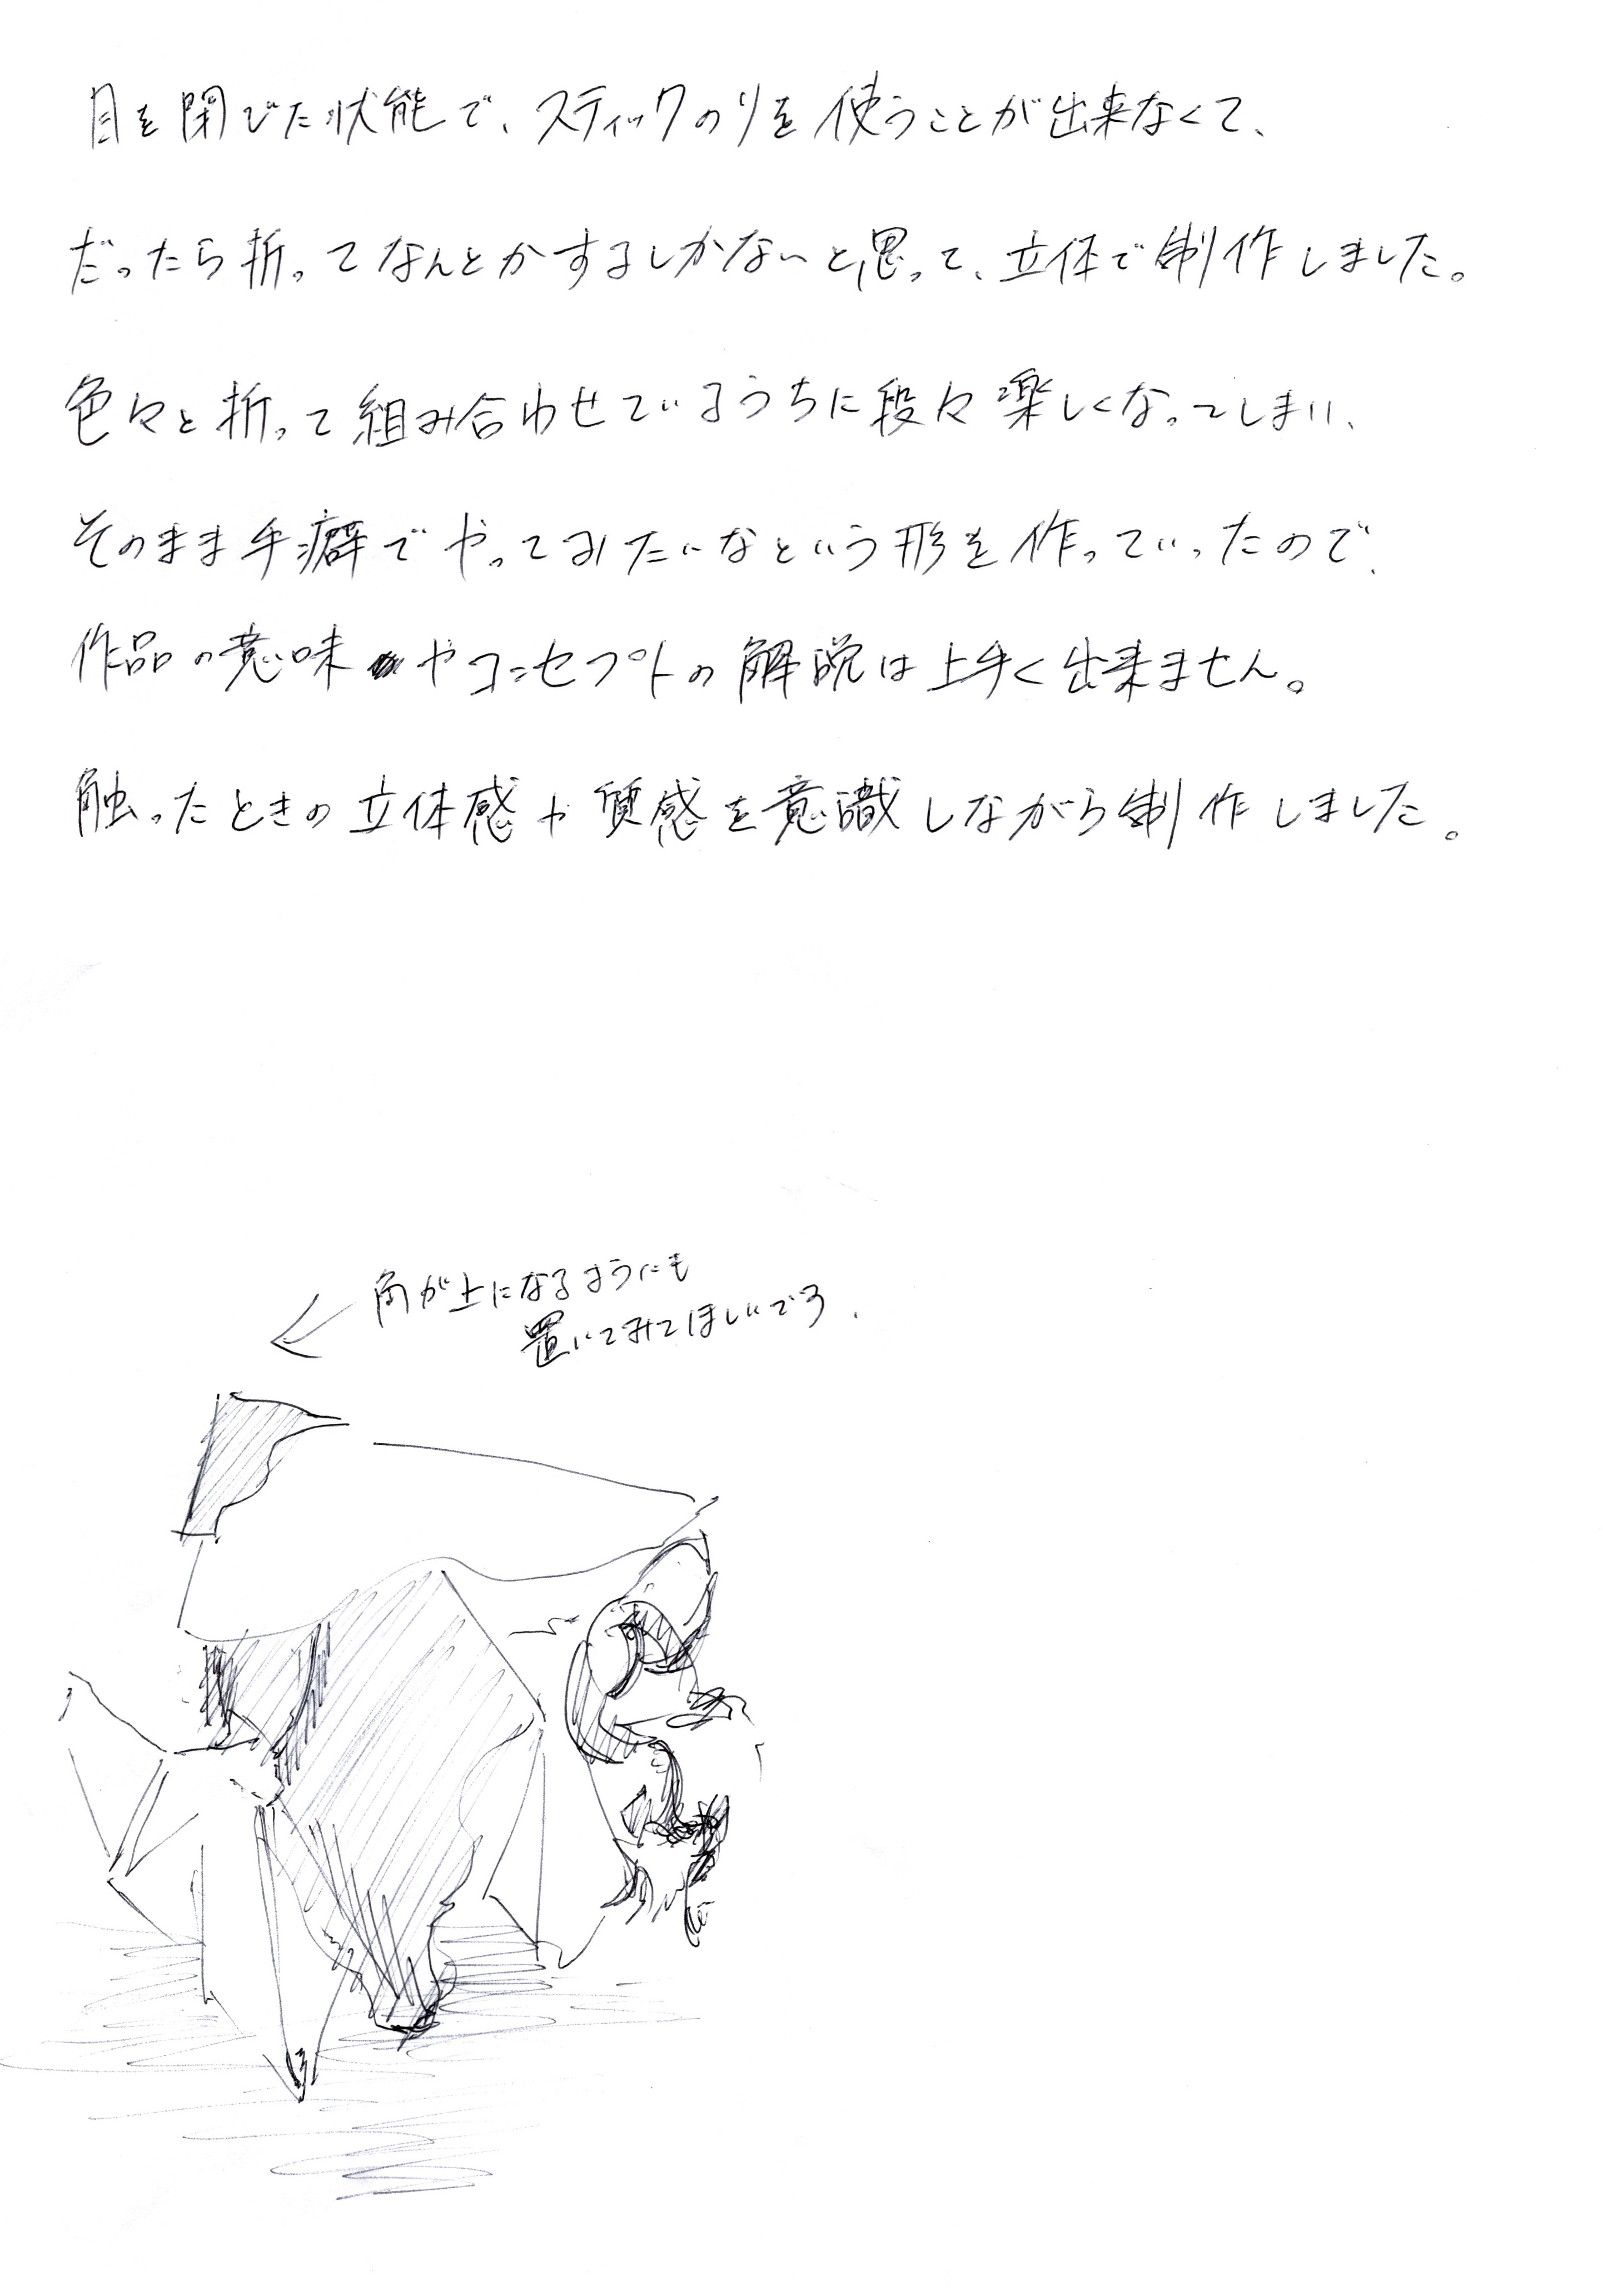 目を閉びた状態で、スティックのりを使うことが出来なくて、
だったら折ってなんとかするしかないと思って、立体で制作しました。
色々と折って組み合わせているうちに段々楽しくなってしまい、
そのまま手癖でやってみたいなという形を作っていったので、
作品の意味やコンセプトの解説は上手く出来ません。
触ったときの立体感や質感を意識しながら制作しました。
角が上になるようにも
置いてみてほしいです.